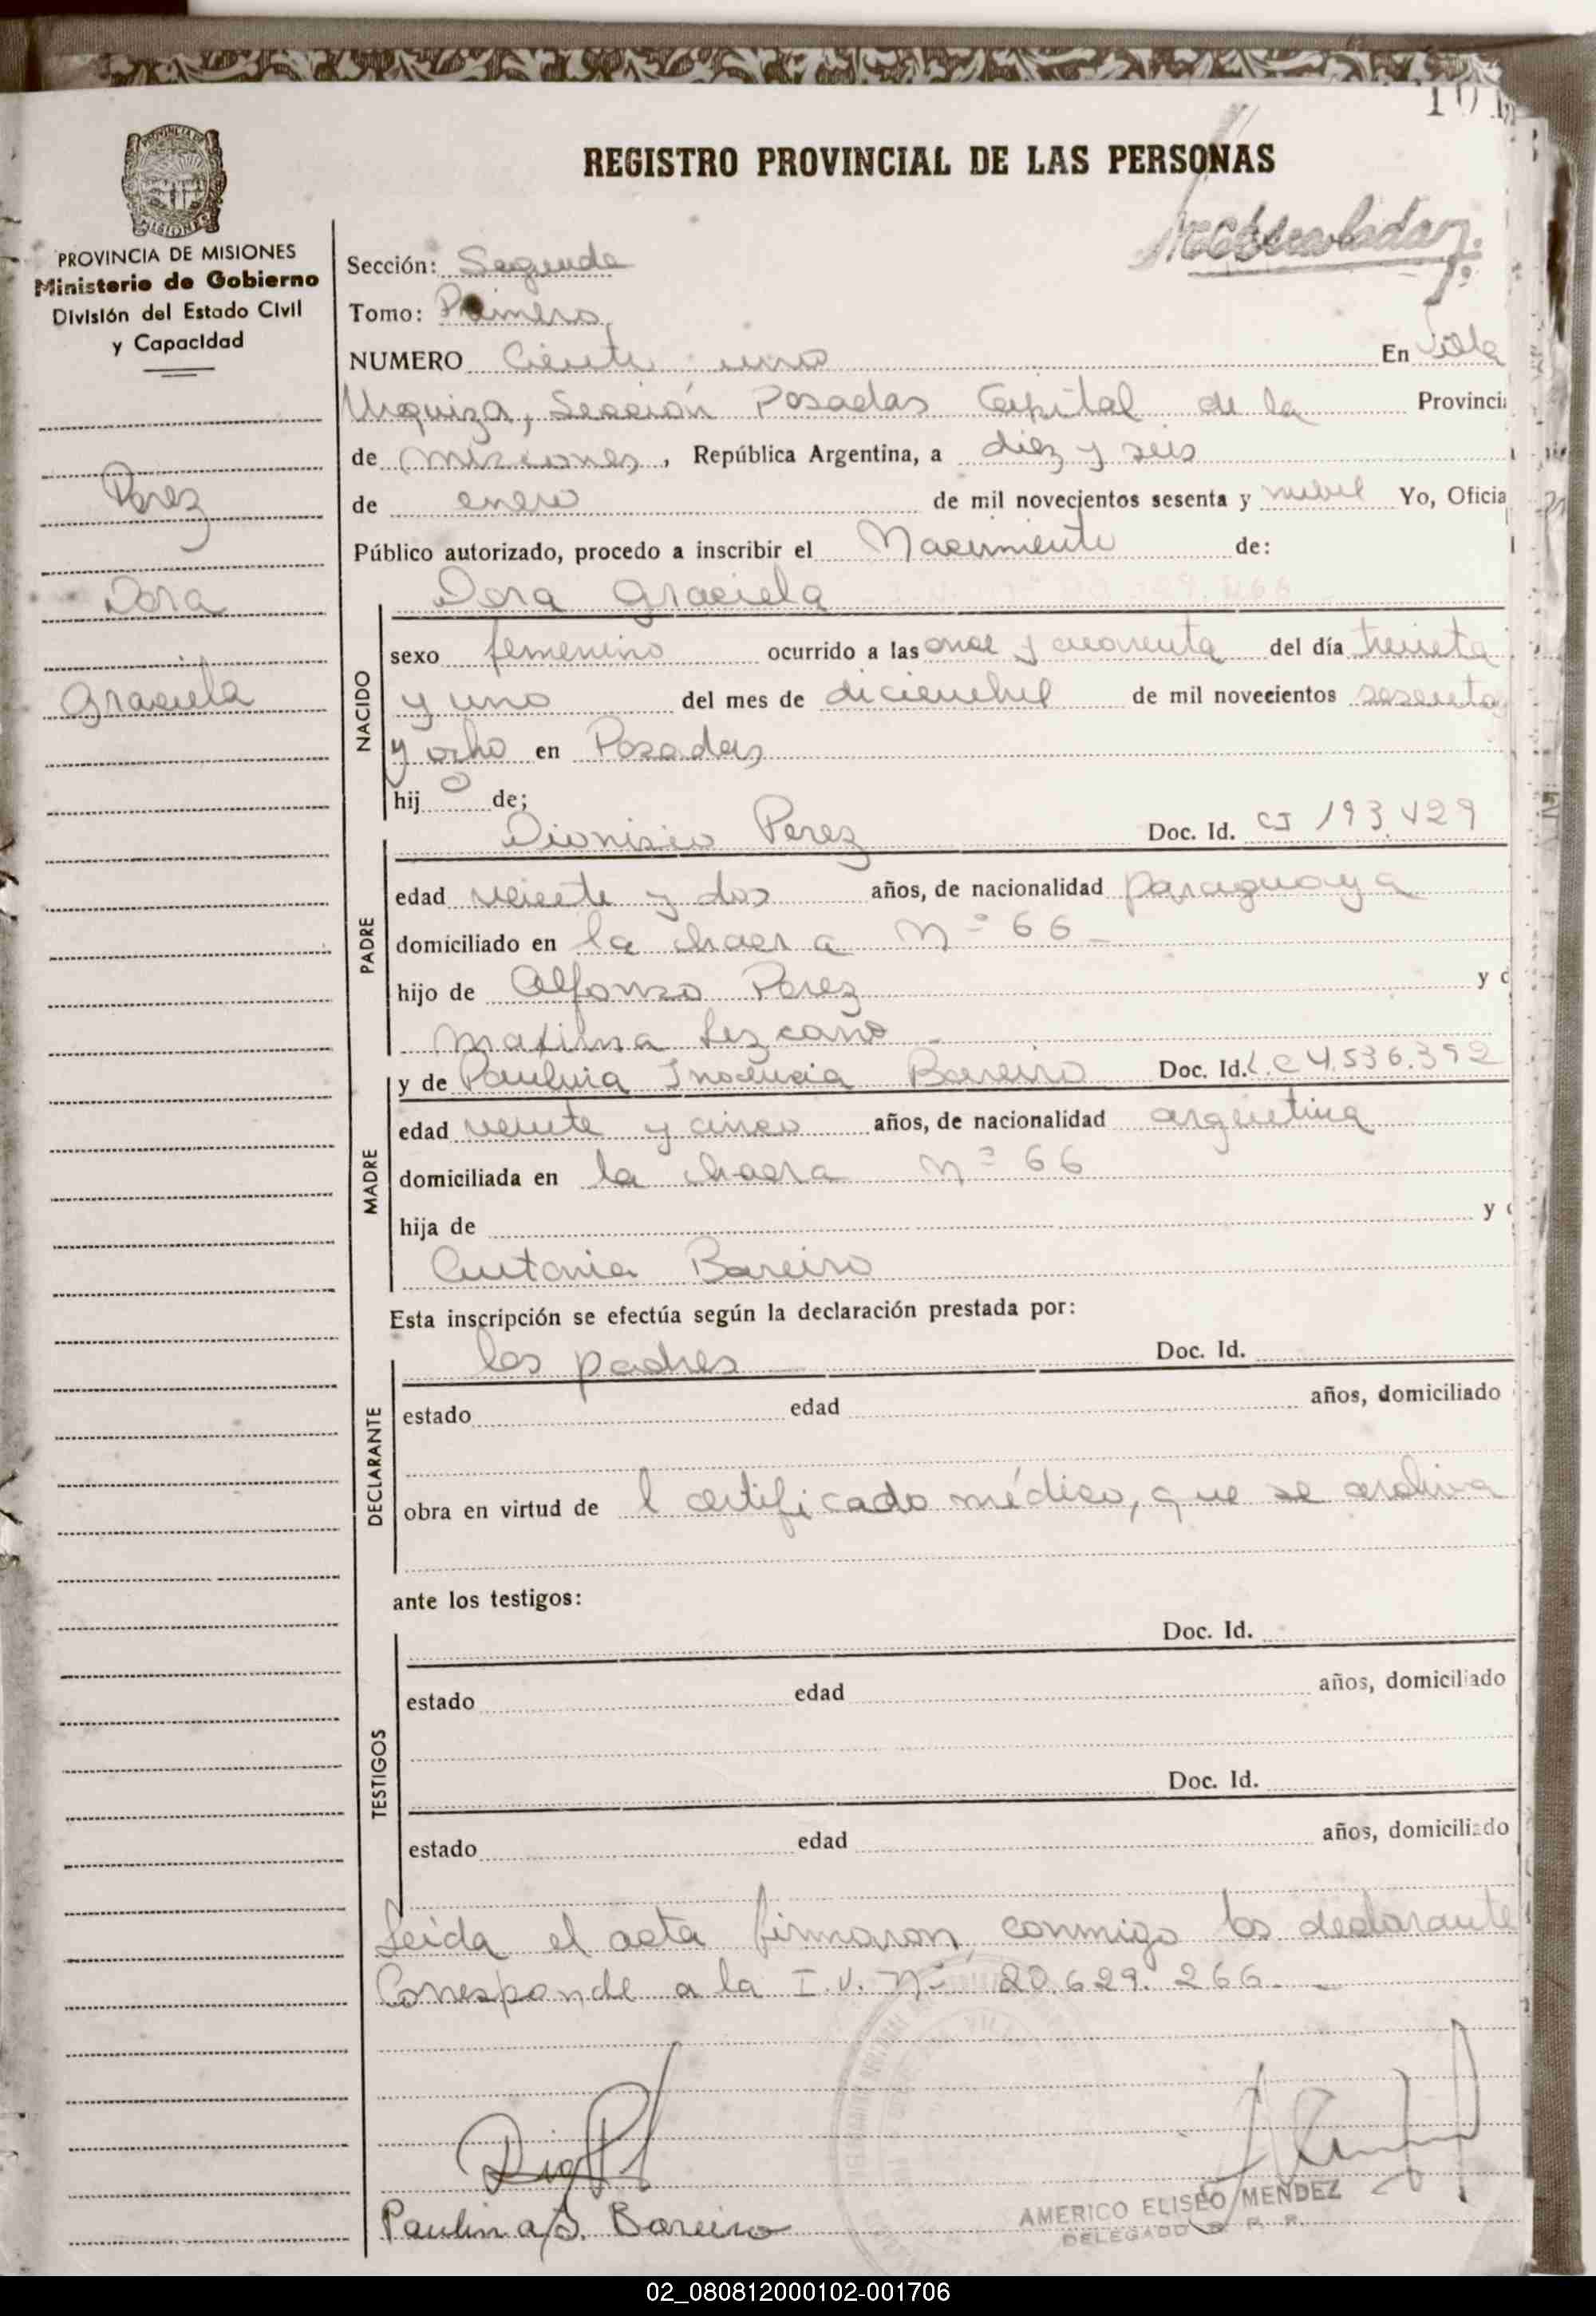 101
REGISTRO PROVINCIAL DE LAS PERSONAS
PROVINCIA DE MISIONES
Ministerio de Gobierno
División del Estado Civil
y Capacidad
Perez
Dora
Graciela
Sección: Segunda
Tomo: Primero
NUMERO Ciento uno En Villa
Urquiza, Sección Posadas Capital de la Provincia
de Misiones, República Argentina, a diez y seis
de enero de mil novecientos sesenta y nueve Yo, Oficia
Público autorizado, procedo a inscribir el Nacimiento de:
Dora Graciela
NACIDO
sexo femenino ocurrido a las once y cuarenta del día treinta
y uno del mes de diciembre de mil novecientos sesenta
y ocho en Posadas
hij o de;
PADRE
Dionisio Perez Doc. Id. CI 193.429
edad veinte y dos años, de nacionalidad paraguaya
domiciliado en la chacra Nº 66
hijo de Alfonso Perez y d
Maxima Lezcano
MADRE
y de Paulina Inocencia Bareiro Doc. Id. L.C 4.536.392
edad veinte y cinco años, de nacionalidad argentina
domiciliada en la chacra Nº 66
hija de y d
Antonia Bareiro
Esta inscripción se efectúa según la declaración prestada por:
DECLARANTE
los padres Doc. Id.
estado edad años, domiciliado
obra en virtud de l certificado médico, que se archiva
ante los testigos:
TESTIGOS
Doc. Id.
estado edad años, domiciliado
Doc. Id.
estado edad años, domiciliado
Leída el acta firmaron conmigo los declarante
Corresponde a la I.V. Nº 20.629.266.-
Paulina I. Bareiro
AMERICO ELISEO MENDEZ
DELEGADO R. P. P.
02_080812000102-001706